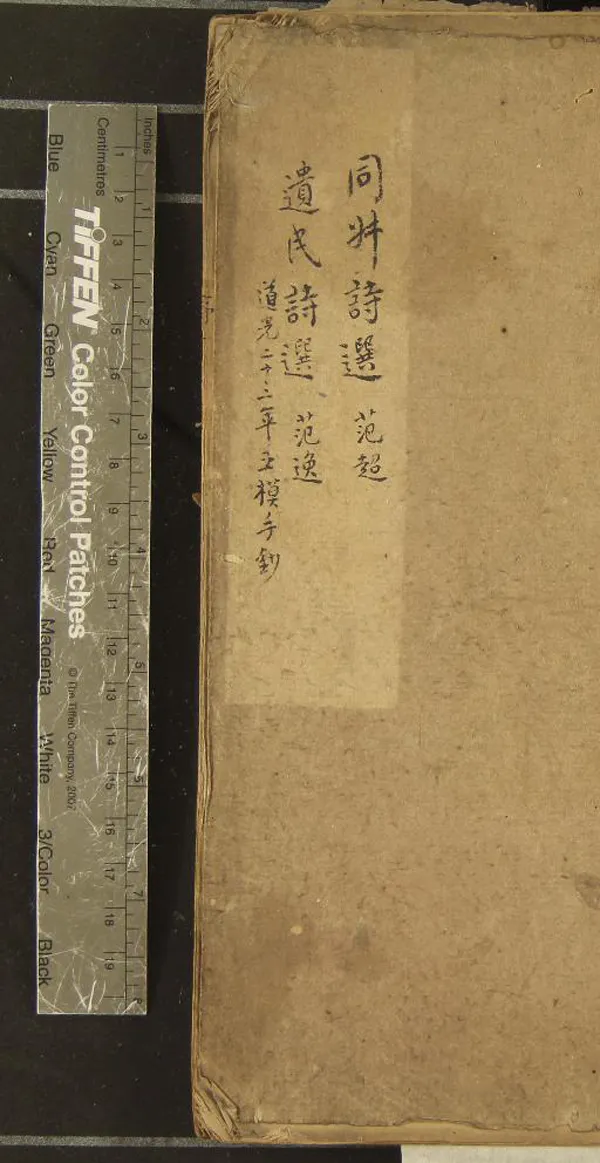 同叔詩選 范超
遺民詩選 范逸
道光二十三年王模手鈔
Inches
1 2 3 4 5 6 7 8
Centimetres
1 2 3 4 5 6 7 8 9 10 11 12 13 14 15 16 17 18 19
TIFFEN Color Control Patches
© The Tiffen Company, 2007
Blue Cyan Green Yellow Red Magenta White 3/Color Black